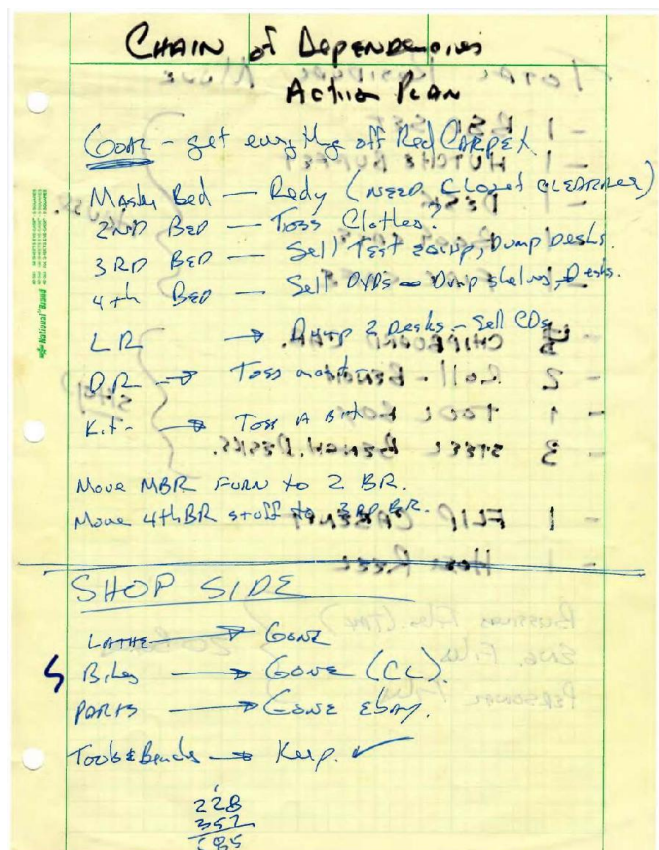 CHAIN of DEPENDENCIES
ACTION PLAN
GOAL - get everything off Red CARPET.
Master Bed — Redy (NEED CLOSET CLEARNED)
2ND BED — Toss Clothes?
3RD BED — Sell Test Equip, Dump Desks.
4th BED — Sell DVDs — Dump shelving, Desks.
LR → Dump 2 Desks - Sell CDs.
DR → Toss
Kit - → Toss A bit
Move MBR FURN to 2 BR.
Move 4thBR stuff to 3RD BR.
SHOP SIDE
LATHE → GONE
5 Bikes → GONE (CL).
PARTS → GONE EBAY.
Tools & Bench → Keep. ✓
228
357
585
National Brand